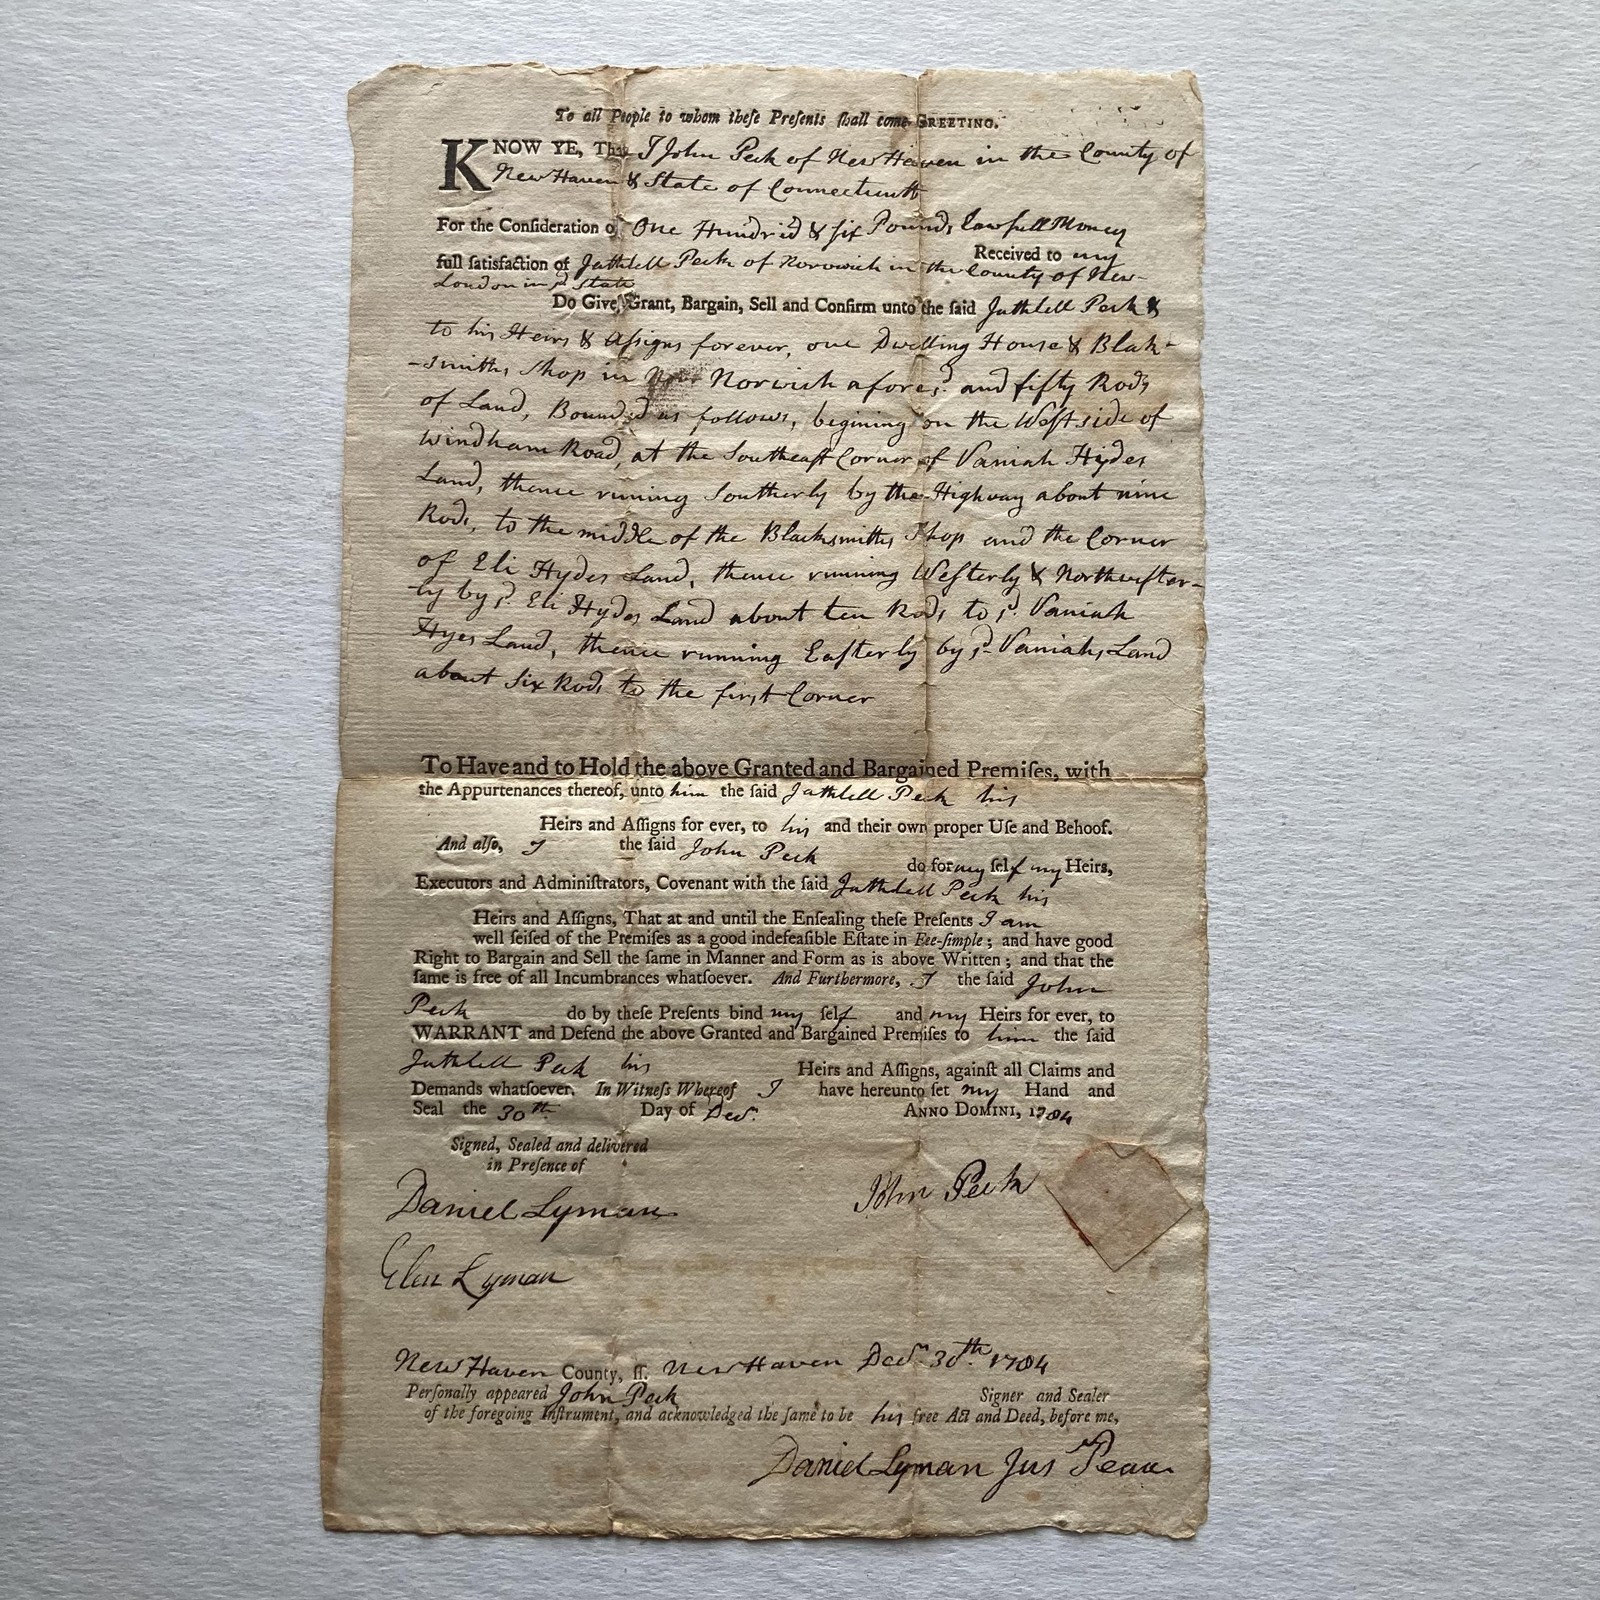 To all People to whom theſe Preſents ſhall come GREETING.
KNOW YE, That I John Peck of New Haven in the County of
New Haven & State of Connecticutt
For the Conſideration of One Hundrid & ſix Pounds Lawfull Money
Received to my
full ſatisfaction of Jathlell Peck of Norowich in the County of New-
London in sd State
Do Give, Grant, Bargain, Sell and Confirm unto the ſaid Jathlell Peck &
to his Heirs & Aſsigns forever, one Dwelling House & Blak-
-smiths Shop in Norwich aforesd. and fifty Rods
of Land, Bounded as follows, begining on the West side of
Windham Road, at the Southeast Corner of Vaniah Hydes
Land, thence runing Southerly by the Highway about nine
Rods, to the middle of the Blacksmiths Shop and the Corner
of Eli Hydes Land, thence running Westerly & Northwester-
-ly by sd. Eli Hydes Land about ten Rods to sd. Vaniah
Hyes Land, thence running Easterly by sd. Vaniahs Land
about six Rods to the first Corner
To Have and to Hold the above Granted and Bargained Premiſes, with
the Appurtenances thereof, unto him the ſaid Jathlell Peck his
Heirs and Aſſigns for ever, to his and their own proper Uſe and Behoof.
And alſo, I the ſaid John Peck
do for my ſelf my Heirs,
Executors and Adminiſtrators, Covenant with the ſaid Jathlell Peck his
Heirs and Aſſigns, That at and until the Enſealing theſe Preſents I am
well ſeiſed of the Premiſes as a good indefeaſible Eſtate in Fee-ſimple; and have good
Right to Bargain and Sell the ſame in Manner and Form as is above Written; and that the
ſame is free of all Incumbrances whatſoever. And Furthermore, I the ſaid John
Peck do by theſe Preſents bind my ſelf and my Heirs for ever, to
WARRANT and Defend the above Granted and Bargained Premiſes to him the ſaid
Jathlell Peck his Heirs and Aſſigns, againſt all Claims and
Demands whatſoever. In Witneſs Whereof I have hereunto ſet my Hand and
Seal the 30th Day of Decr. ANNO DOMINI, 1784
Signed, Sealed and delivered
in Preſence of
Daniel Lyman John Peck
Elen Lyman
New Haven County, ſſ. New Haven Decr. 30th. 1784
Perſonally appeared John Peck Signer and Sealer
of the foregoing Inſtrument, and acknowledged the ſame to be his free Act and Deed, before me,
Daniel Lyman Jus Peace